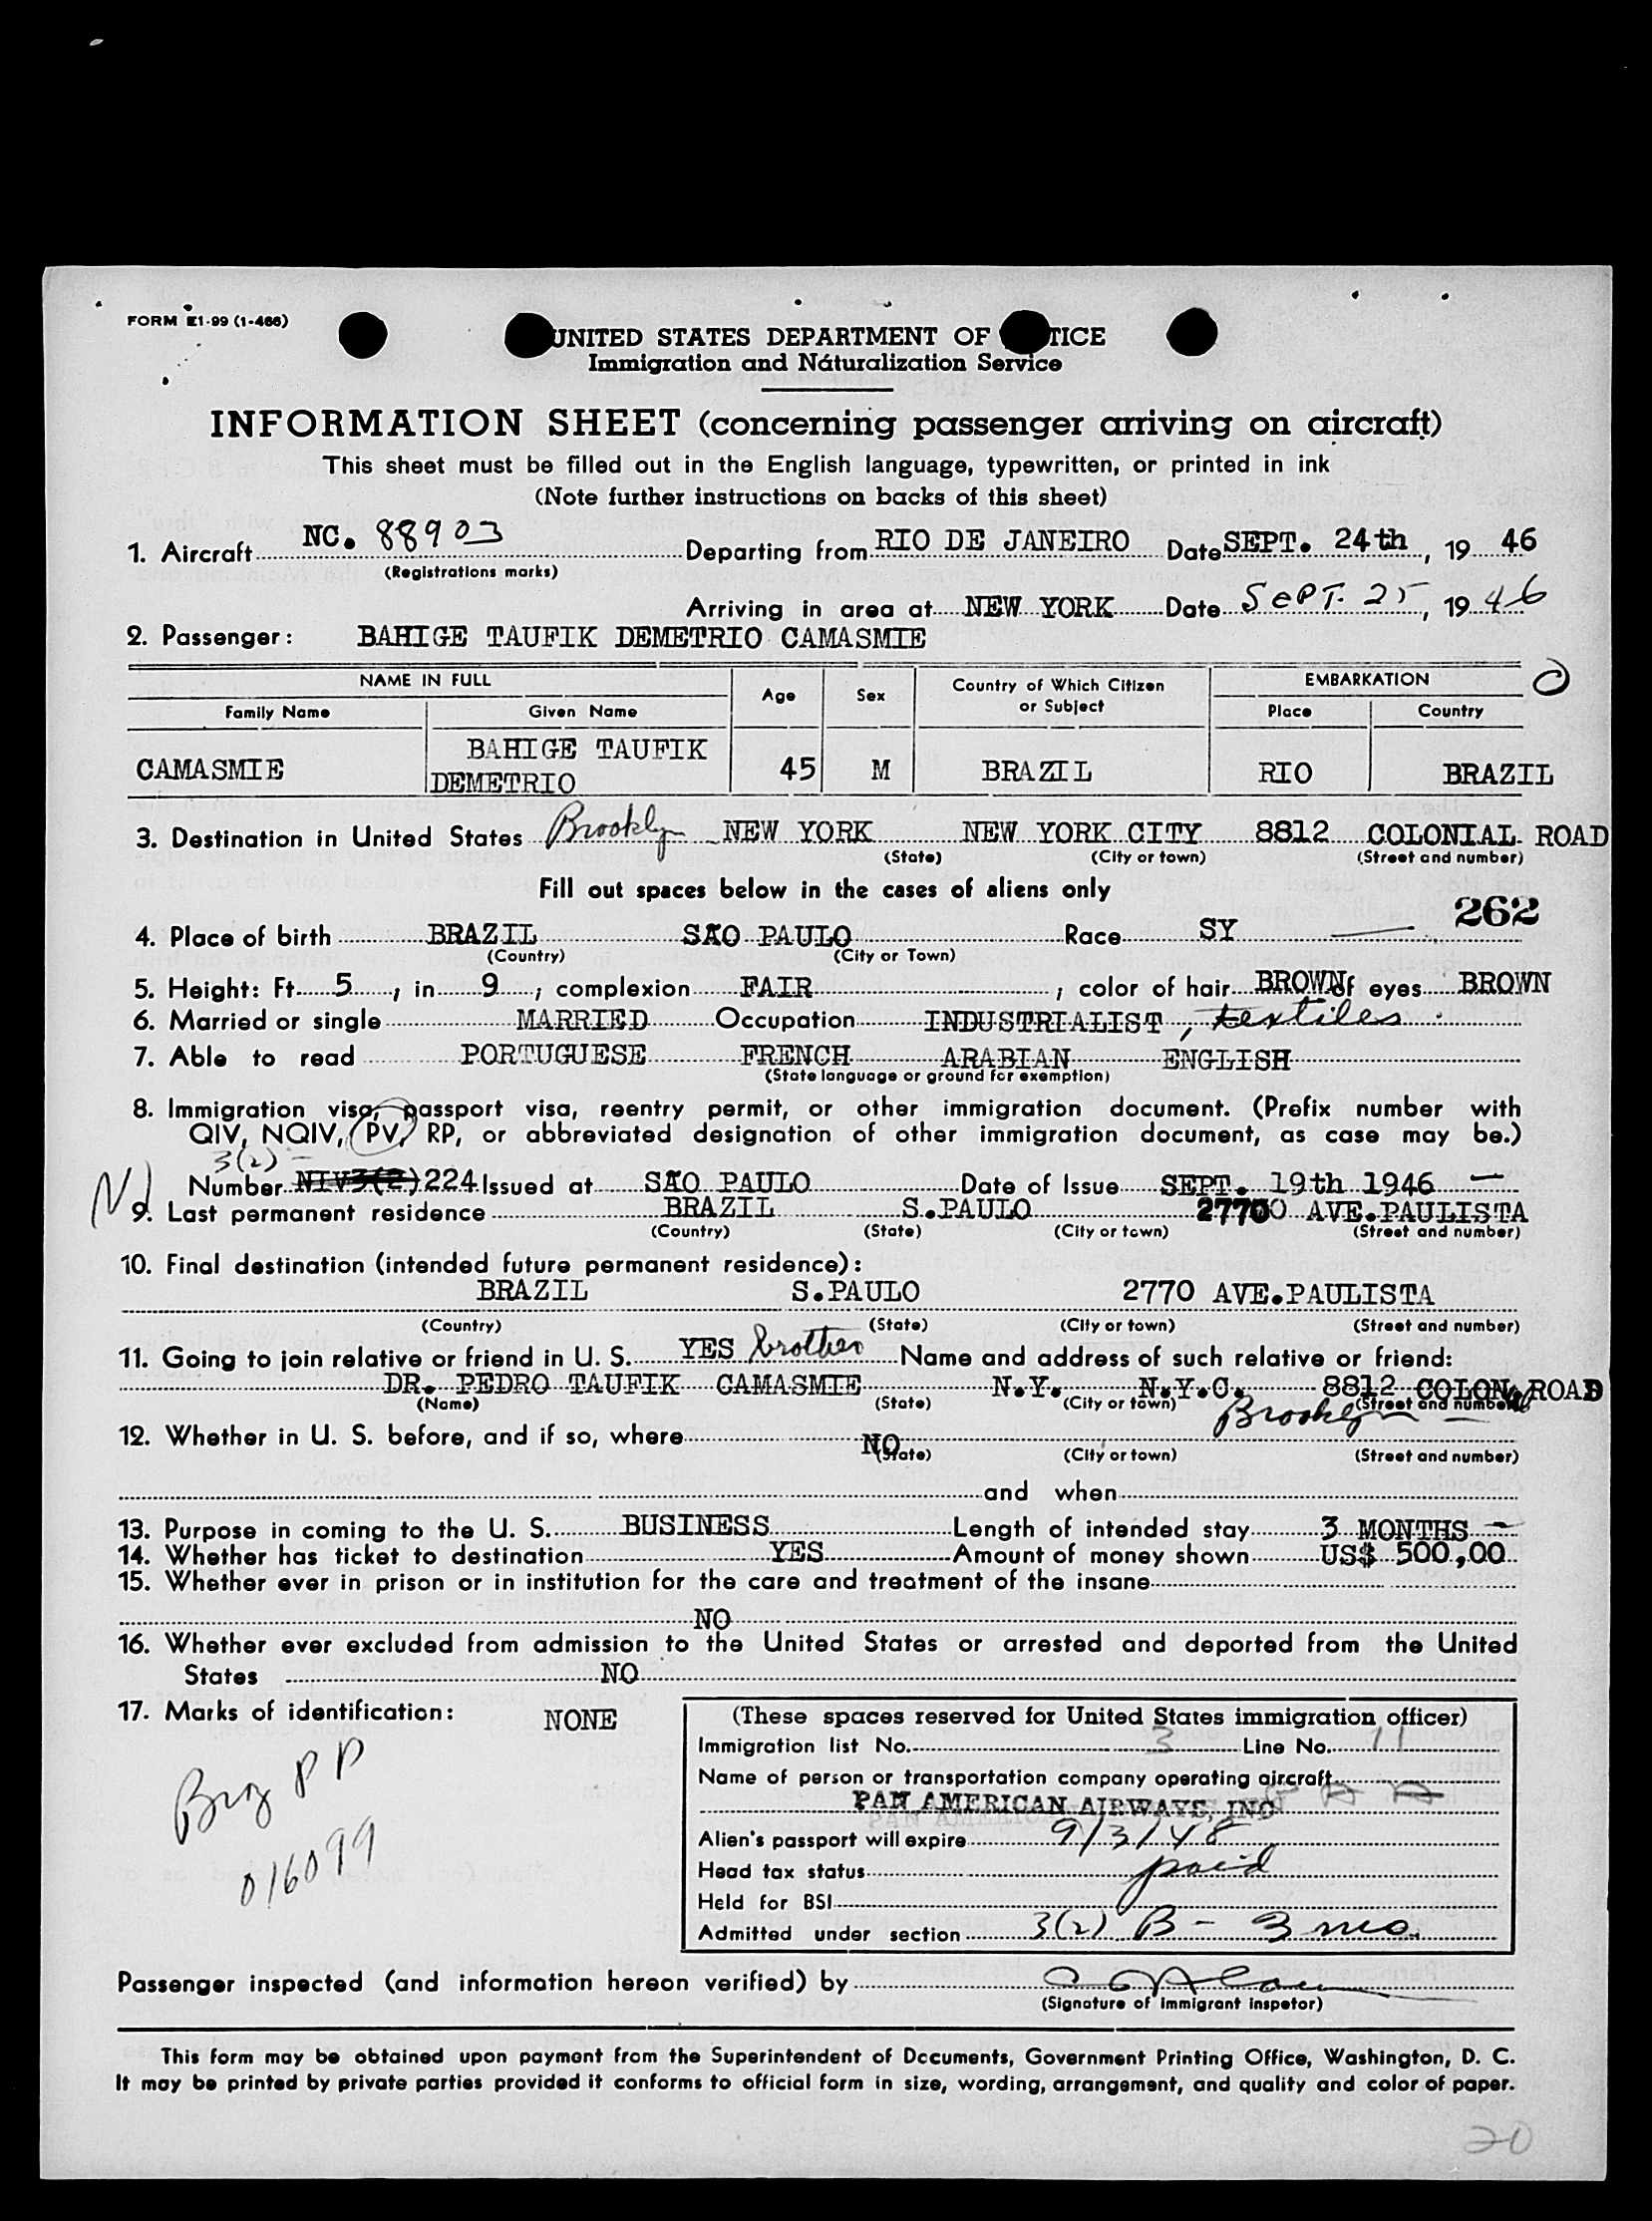 FORM I-99 (1-466)
UNITED STATES DEPARTMENT OF TICE
Immigration and Naturalization Service
INFORMATION SHEET (concerning passenger arriving on aircraft)
This sheet must be filled out in the English language, typewritten, or printed in ink
(Note further instructions on backs of this sheet)
1. Aircraft NC. 88903 Departing from RIO DE JANEIRO Date SEPT. 24th, 19 46
(Registrations marks)
Arriving in area at NEW YORK Date SEPT. 25, 19 46
2. Passenger: BAHIGE TAUFIK DEMETRIO CAMASMIE
NAME IN FULL Age Sex Country of Which Citizen or Subject EMBARKATION
Family Name Given Name Place Country
CAMASMIE BAHIGE TAUFIK DEMETRIO 45 M BRAZIL RIO BRAZIL
3. Destination in United States Brooklyn NEW YORK NEW YORK CITY 8812 COLONIAL ROAD
(State) (City or town) (Street and number)
Fill out spaces below in the cases of aliens only
262
4. Place of birth BRAZIL SÃO PAULO Race SY
(Country) (City or Town)
5. Height: Ft. 5, in. 9; complexion FAIR; color of hair BROWN of eyes BROWN
6. Married or single MARRIED Occupation INDUSTRIALIST, textiles
7. Able to read PORTUGUESE FRENCH ARABIAN ENGLISH
(State language or ground for exemption)
8. Immigration visa, passport visa, reentry permit, or other immigration document. (Prefix number with
QIV, NQIV, PV, RP, or abbreviated designation of other immigration document, as case may be.)
3(2) -
Number NIV3(2) 224 Issued at SÃO PAULO Date of Issue SEPT. 19th 1946
9. Last permanent residence BRAZIL S.PAULO 2770 AVE.PAULISTA
(Country) (State) (City or town) (Street and number)
10. Final destination (intended future permanent residence):
BRAZIL S.PAULO 2770 AVE.PAULISTA
(Country) (State) (City or town) (Street and number)
11. Going to join relative or friend in U. S. YES brother Name and address of such relative or friend:
DR. PEDRO TAUFIK CAMASMIE N.Y. N.Y.C. 8812 COLON. ROAD
(Name) (State) (City or town) (Street and number)
Brooklyn
12. Whether in U. S. before, and if so, where NO
(State) (City or town) (Street and number)
and when
13. Purpose in coming to the U. S. BUSINESS Length of intended stay 3 MONTHS
14. Whether has ticket to destination YES Amount of money shown US$ 500,00
15. Whether ever in prison or in institution for the care and treatment of the insane
NO
16. Whether ever excluded from admission to the United States or arrested and deported from the United
States NO
17. Marks of identification: NONE
Brz PP
016099
(These spaces reserved for United States immigration officer)
Immigration list No. 3 Line No. 11
Name of person or transportation company operating aircraft
PAN AMERICAN AIRWAYS, INC
Alien's passport will expire 9/3/48
Head tax status paid
Held for BSI
Admitted under section 3(2) B - 3 mo.
Passenger inspected (and information hereon verified) by
(Signature of Immigrant Inspetor)
This form may be obtained upon payment from the Superintendent of Documents, Government Printing Office, Washington, D. C.
It may be printed by private parties provided it conforms to official form in size, wording, arrangement, and quality and color of paper.
20